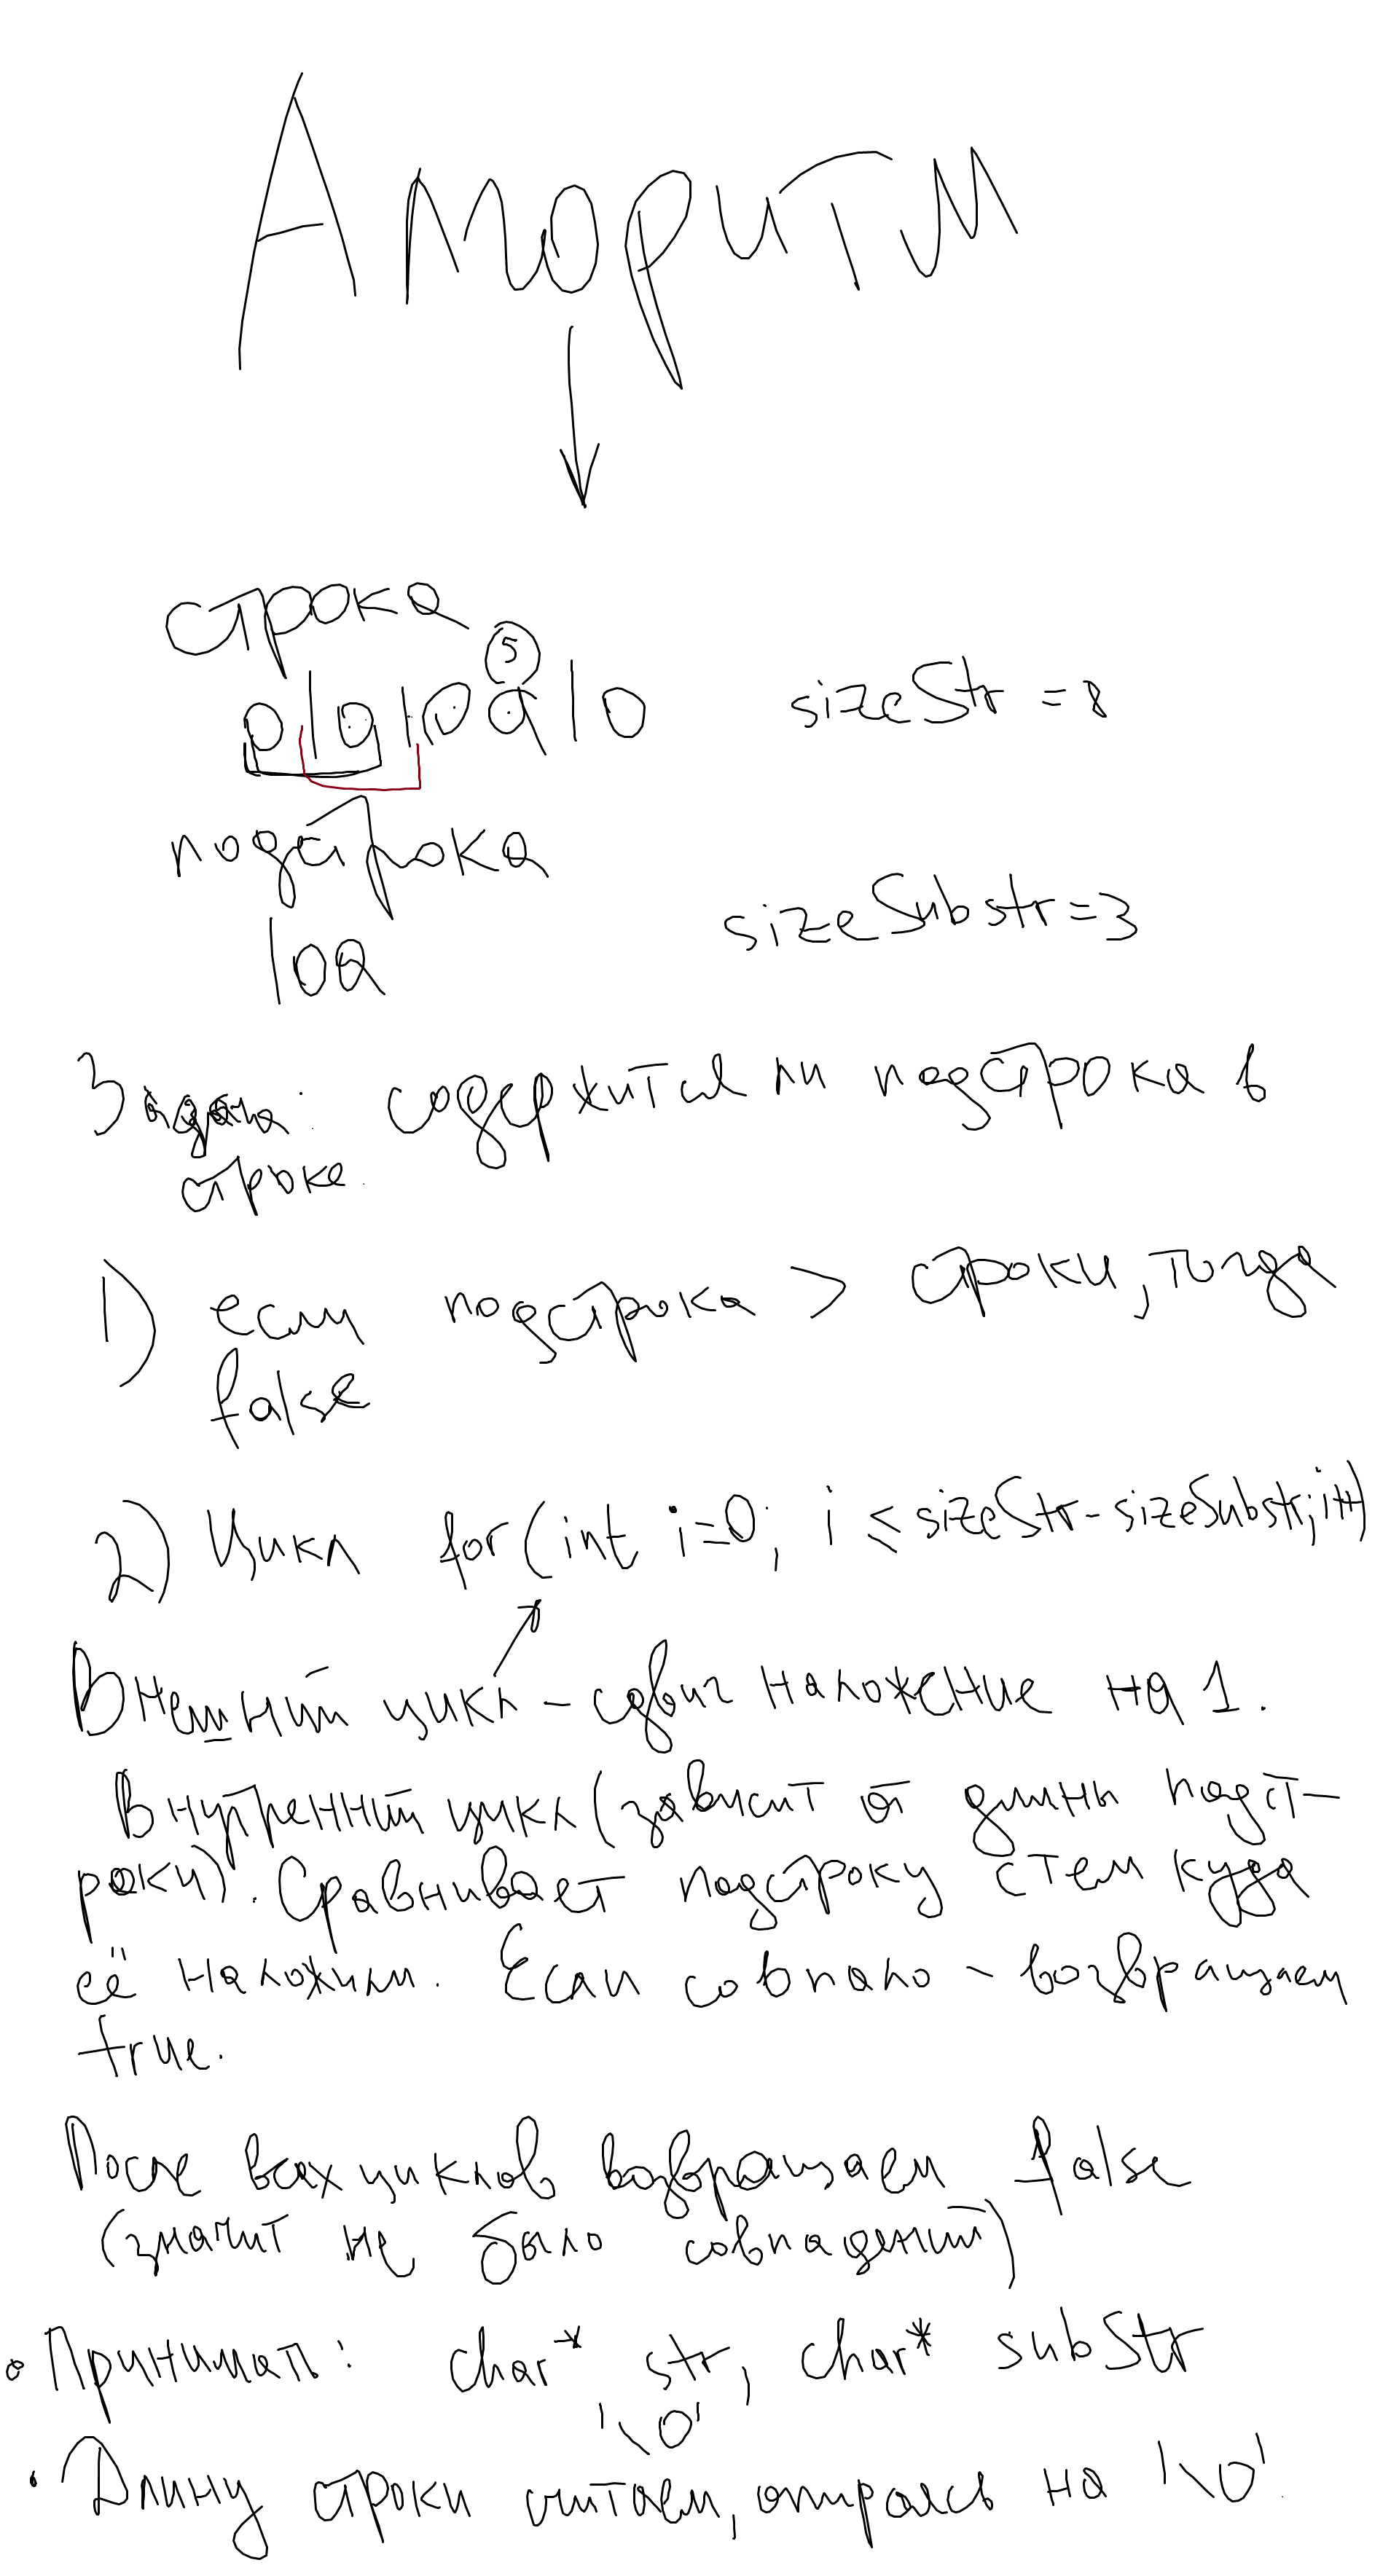 Алгоритм
строка
5
ololoalo
sizeStr = 8
подстрока
loa
sizeSubstr=3
Задача: содержится ли подстрока в
строке.
1) если подстрока > строки, тогда
false
2) Цикл for(int i=0; i ≤ sizeStr-sizeSubstr; i++)
Внешний цикл - сдвиг наложение на 1.
Внутренний цикл (зависит от длины подст-
роки). Сравнивает подстроку с тем куда
её наложили. Если совпало - возвращаем
true.
После всех циклов возвращаем false
(значит не было совпадений)
• Принимать: char* str, char* subStr
'\0'
• Длину строки считаем, опираясь на '\0'.